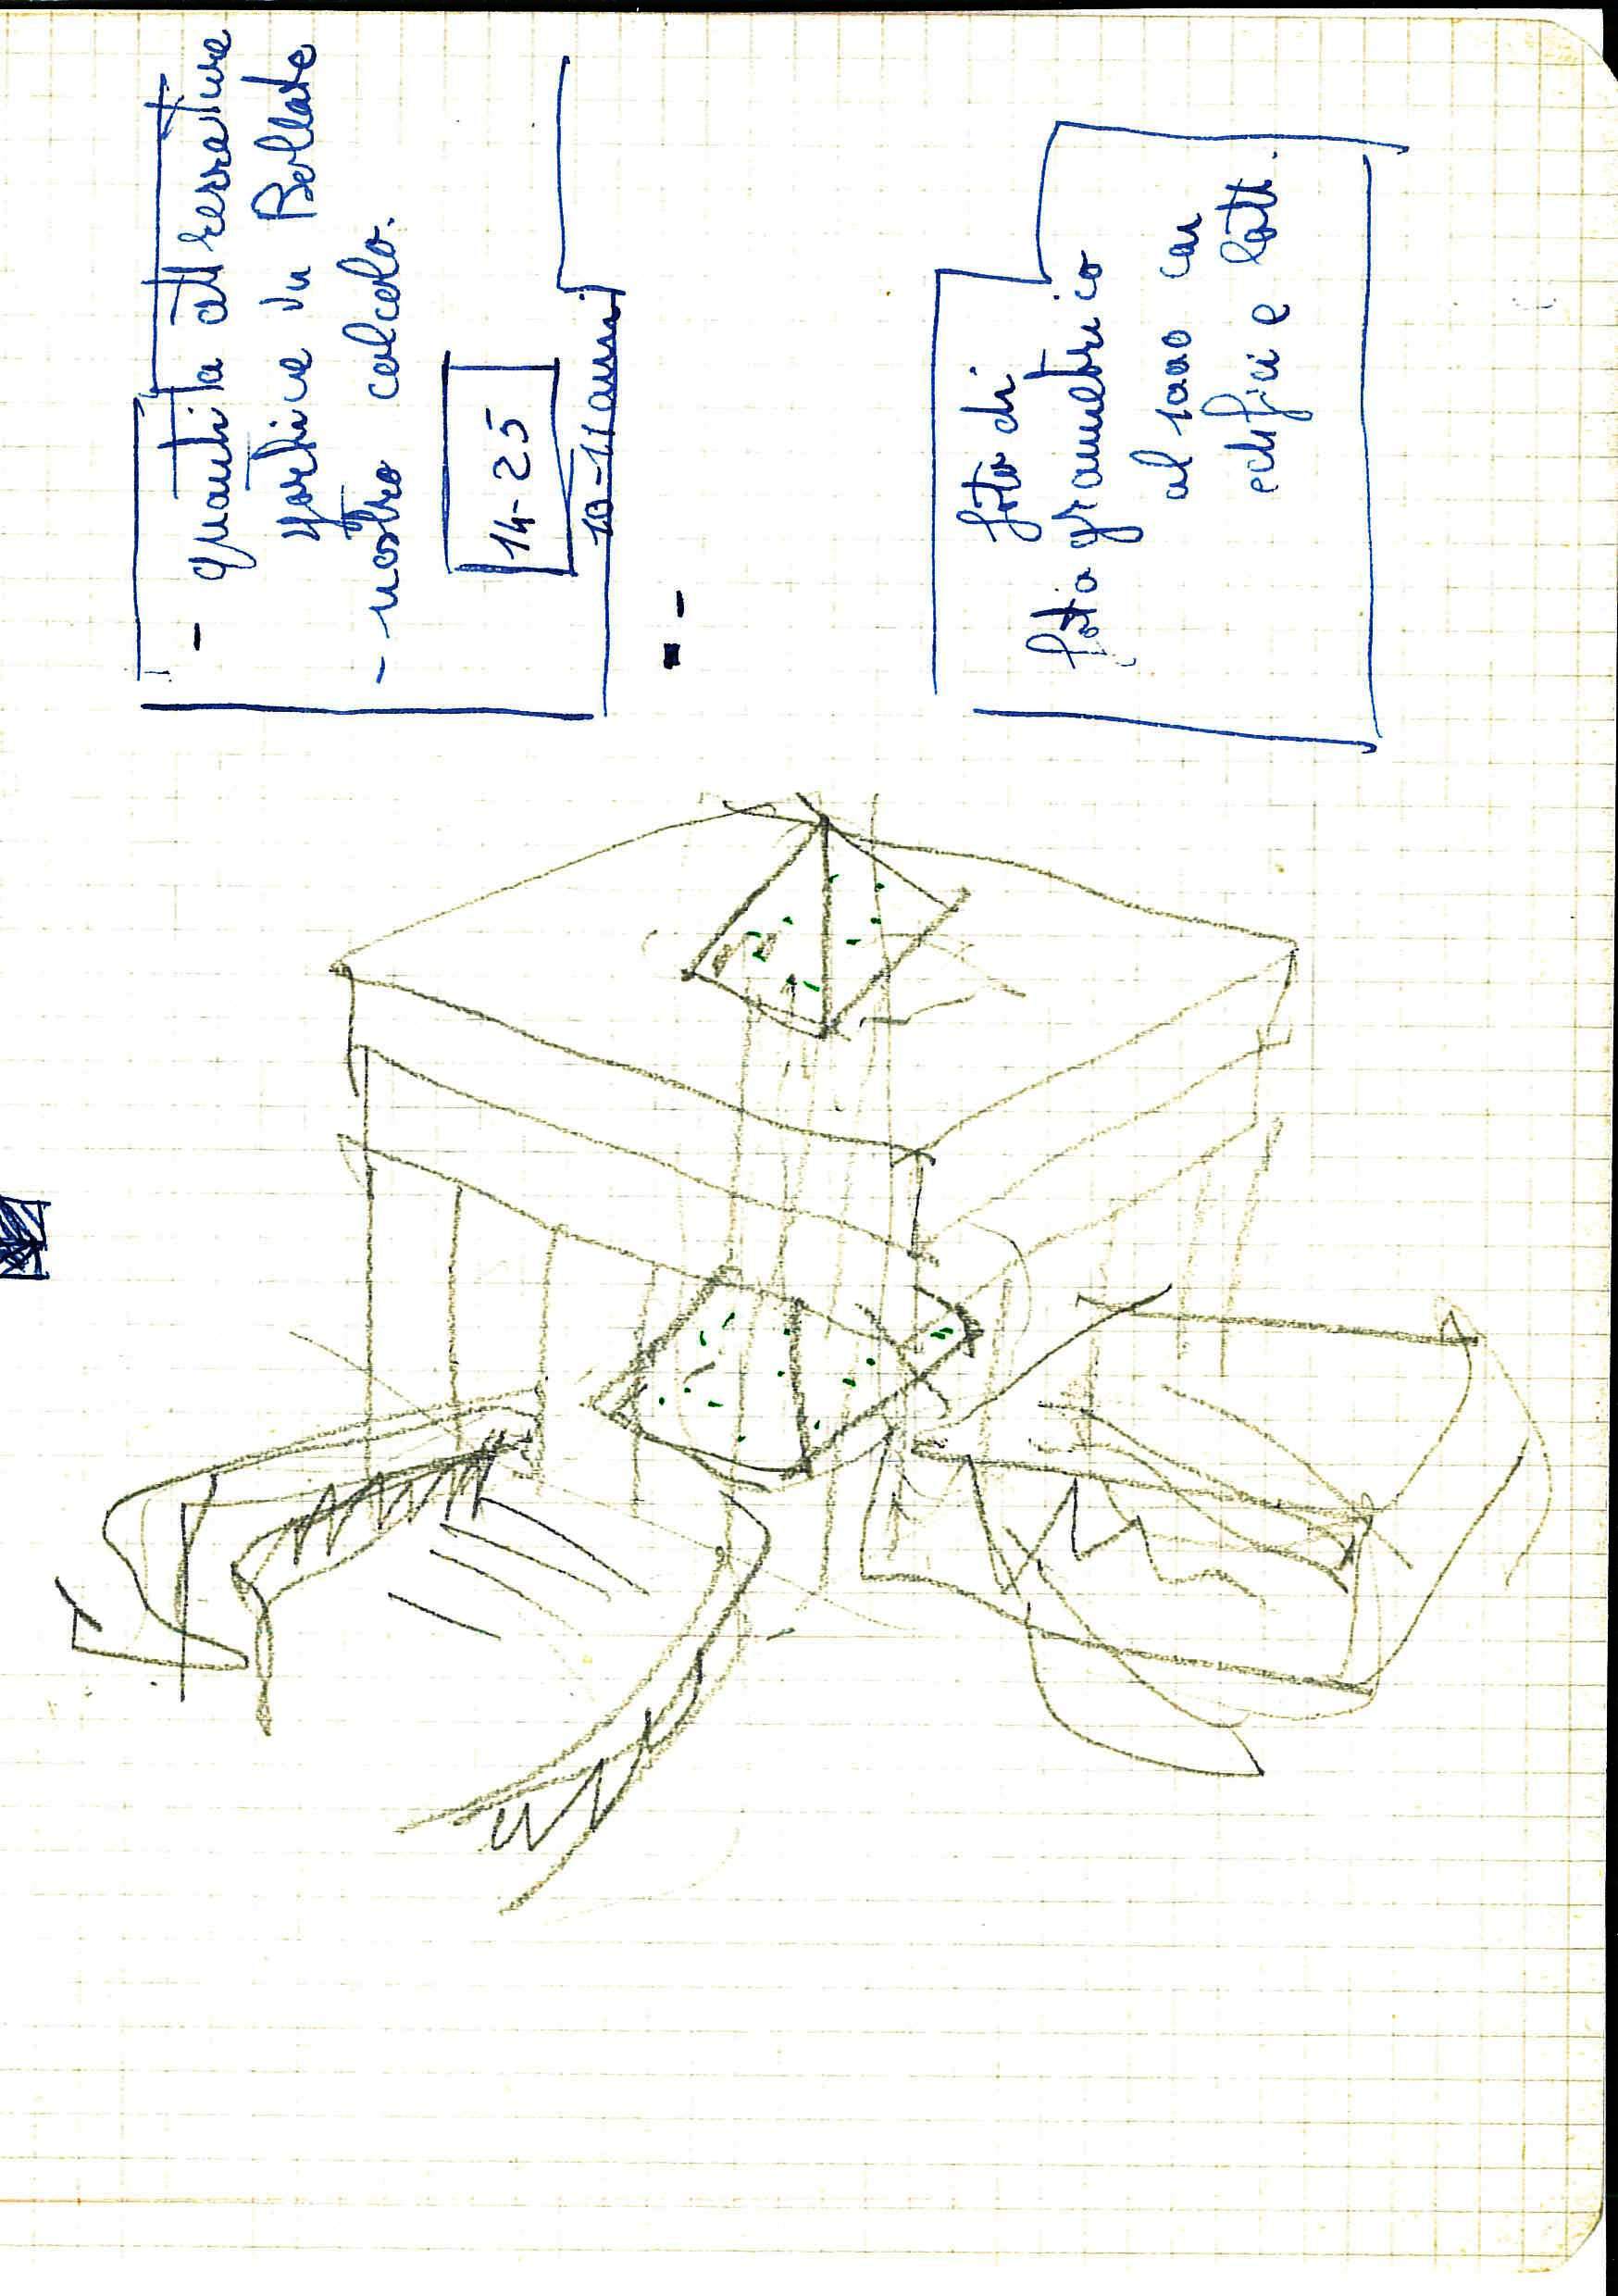 - quantita attrezzature
sportive in Bollate
- nostro calcolo.
14-25
10-11 anni
foto di
fotogrammetrico
al 1000 con
edifici e lott.